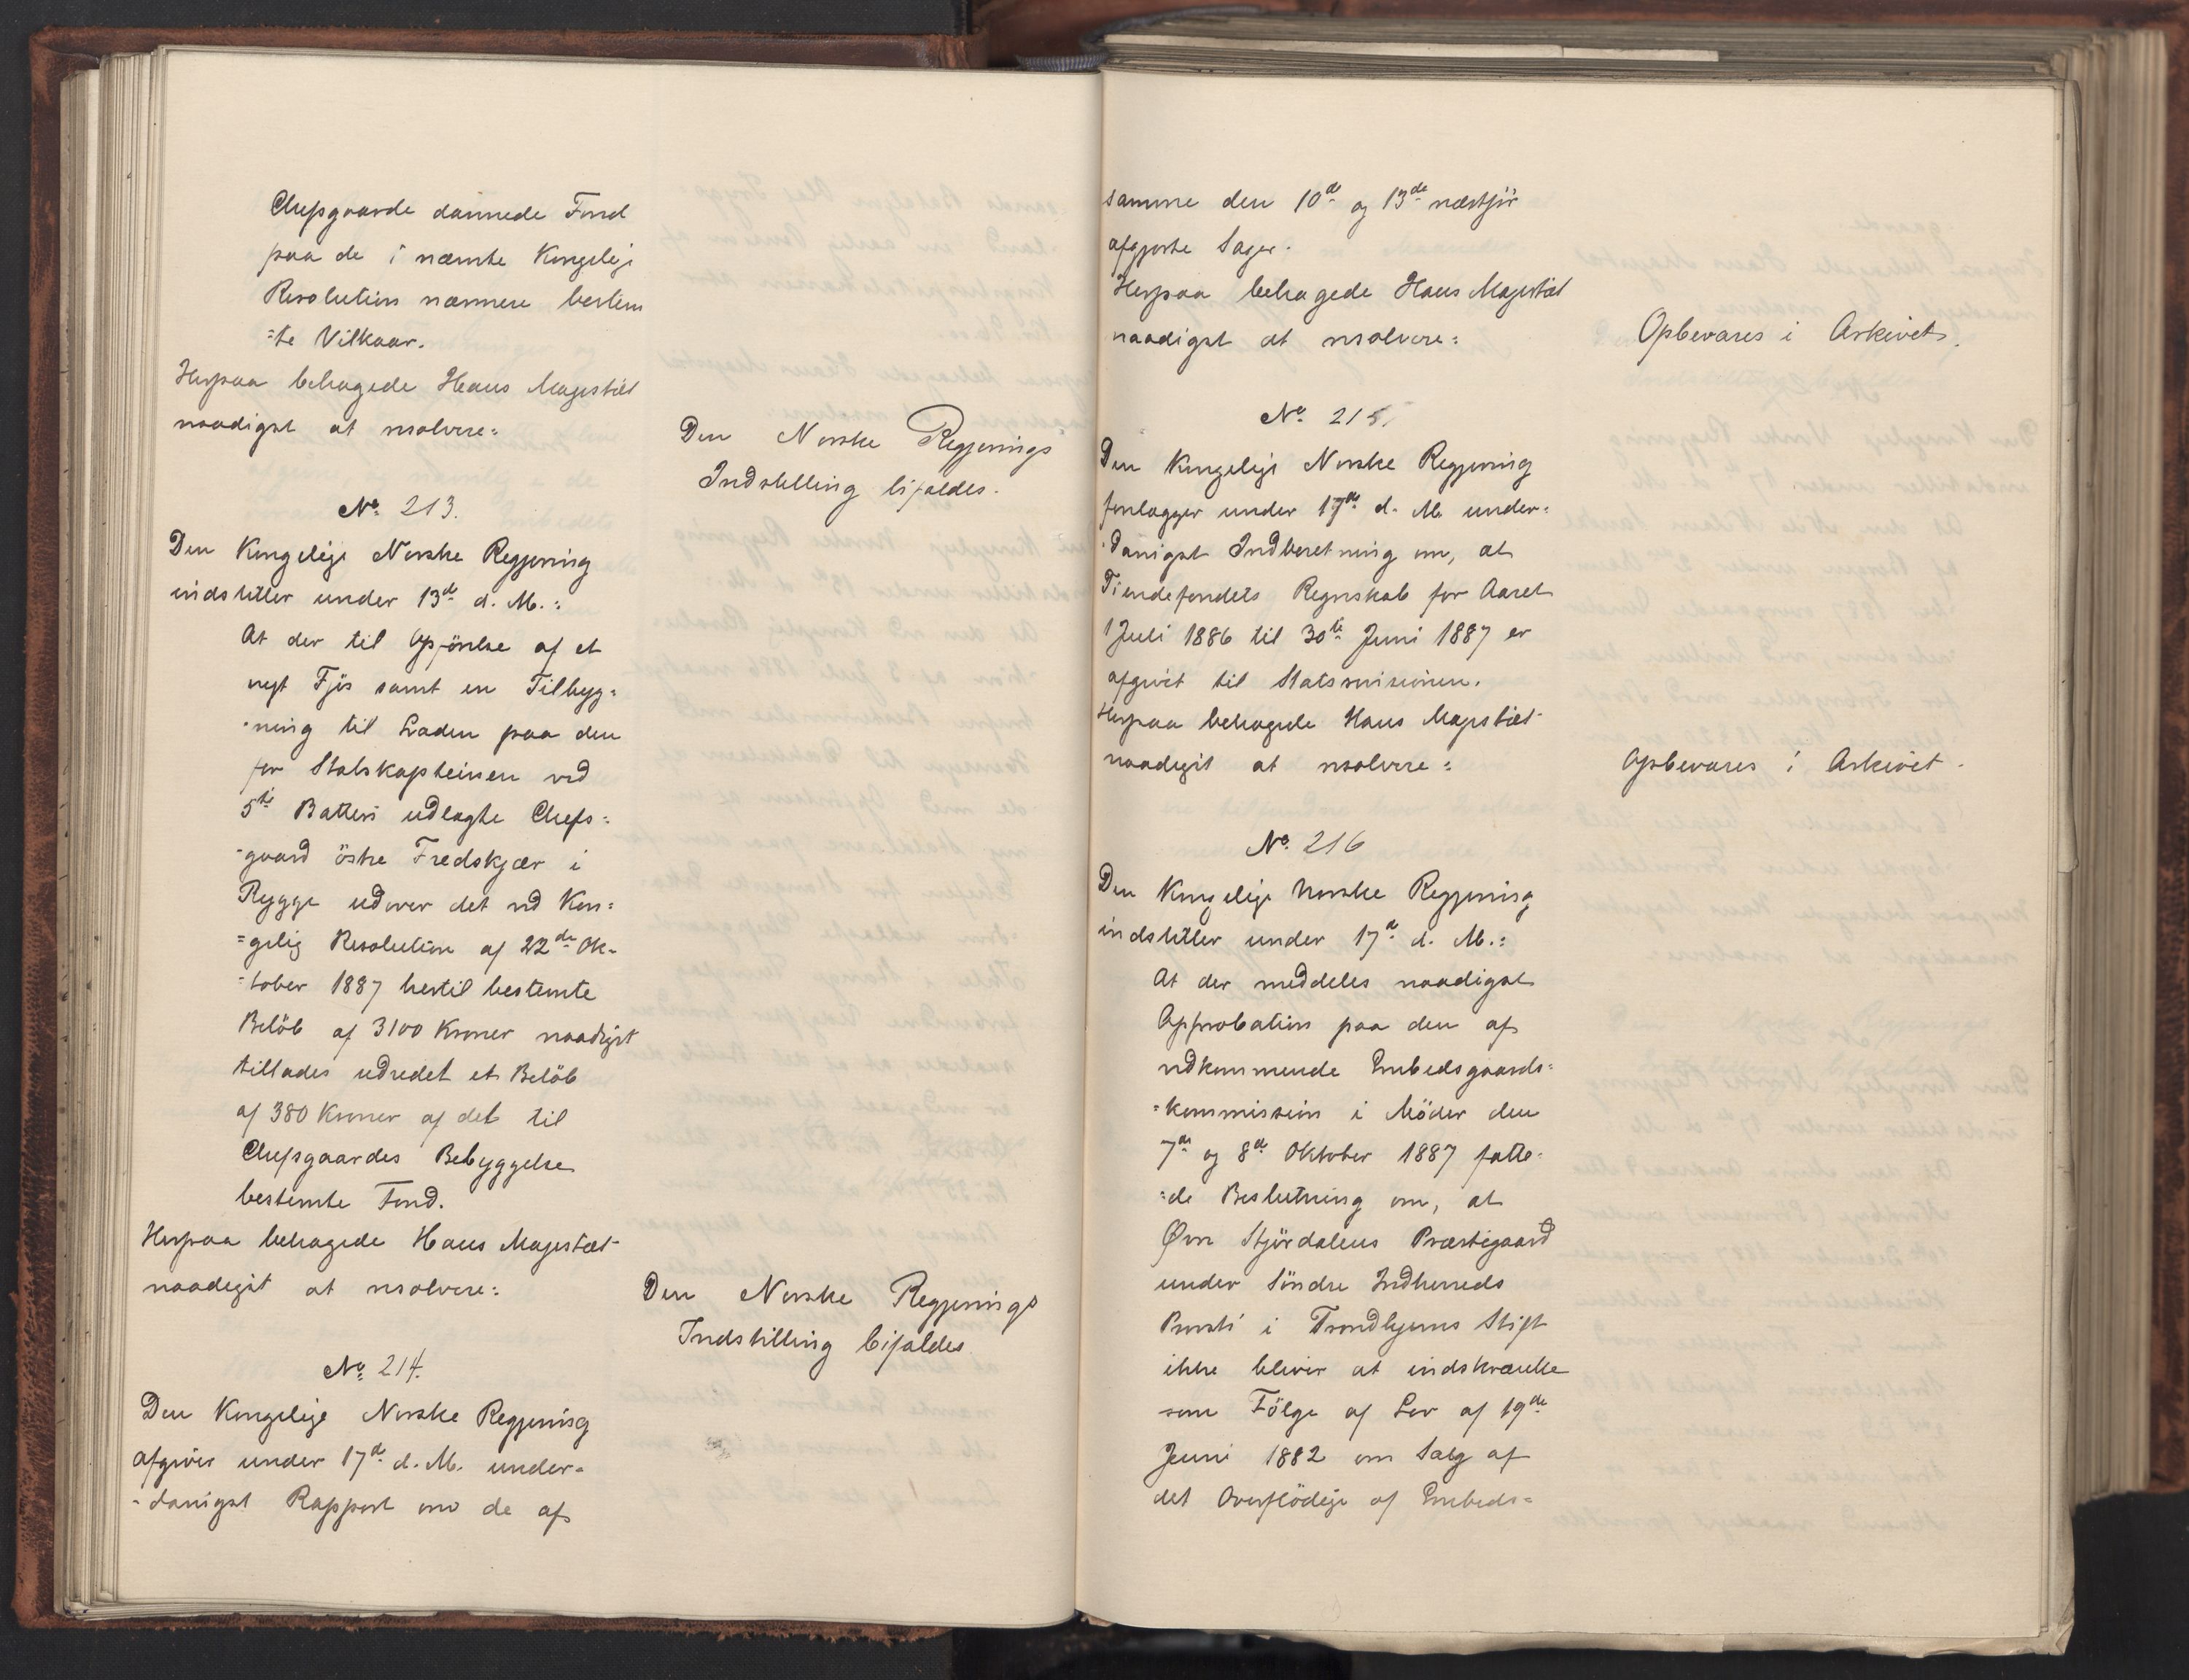 Chefsgaarde dannede Fond
paa de i nævnte Kongelige
Resolution nærmere bestem
=te Vilkaar.
Herpaa behagede Hans Majestæt
naadigst at resolvere:
Den Norske Regjerings
Indstilling bifaldes.
No. 213.
Den Kongelige Norske Regjering
indstiller under 13de d. M.:
At der til Opförelse af et
nyt Fjös samt en Tilbyg=
=ning til Laden paa den
for Statskapteinen ved
5te Batteri udlagte Chefs=
=gaard östre Fredskjær i
Rygge udover det ved Kon=
=gelig Resolution af 22de Ok-
=tober 1887 hertil bestemte
Belöb af 3100 Kroner naadigst
tillades udredet et Belöb
af 380 Kroner af det til
Chefsgaardes Bebyggelse
bestemte Fond.
Herpaa behagede Hans Majestæt
naadigst at resolvere:
Den Norske Regjerings
Indstilling bifaldes
No. 214.
Den Kongelige Norske Regjering
afgiver under 17de d. M. under=
=danigst Rapport om de af
samme den 10de og 13de næstfør
afgjorte Sager.
Herpaa behagede Hans Majestæt
naadigst at resolvere:
Opbevares i Arkivet.
No. 215
Den Kongelige Norske Regjering
forelægger under 17de d. M. under=
=danigst Indberetning om, at
Tiendefondets Regnskab for Aaret
1 Juli 1886 til 30te Juni 1887 er
afgivet til Statsrevisionen.
Herpaa behagede Hans Majestæt
naadigst at resolvere:
Opbevares i Arkivet.
No. 216
Den Kongelige Norske Regjering
indstiller under 17de d. M.:
At der meddeles naadigst
Approbation paa den af
vedkommende Embedsgaards=
=kommission i Möder den
7de og 8de Oktober 1887 fatte-
=de Beslutning om, at
Øvre Stjördalens Præstegaard
under Söndre Indherreds
Provsti i Trondhjems Stift
ikke bliver at indskrænke
som Fölge af Lov af 19de
Juni 1882 om Salg af
det Overflödige af Embeds=